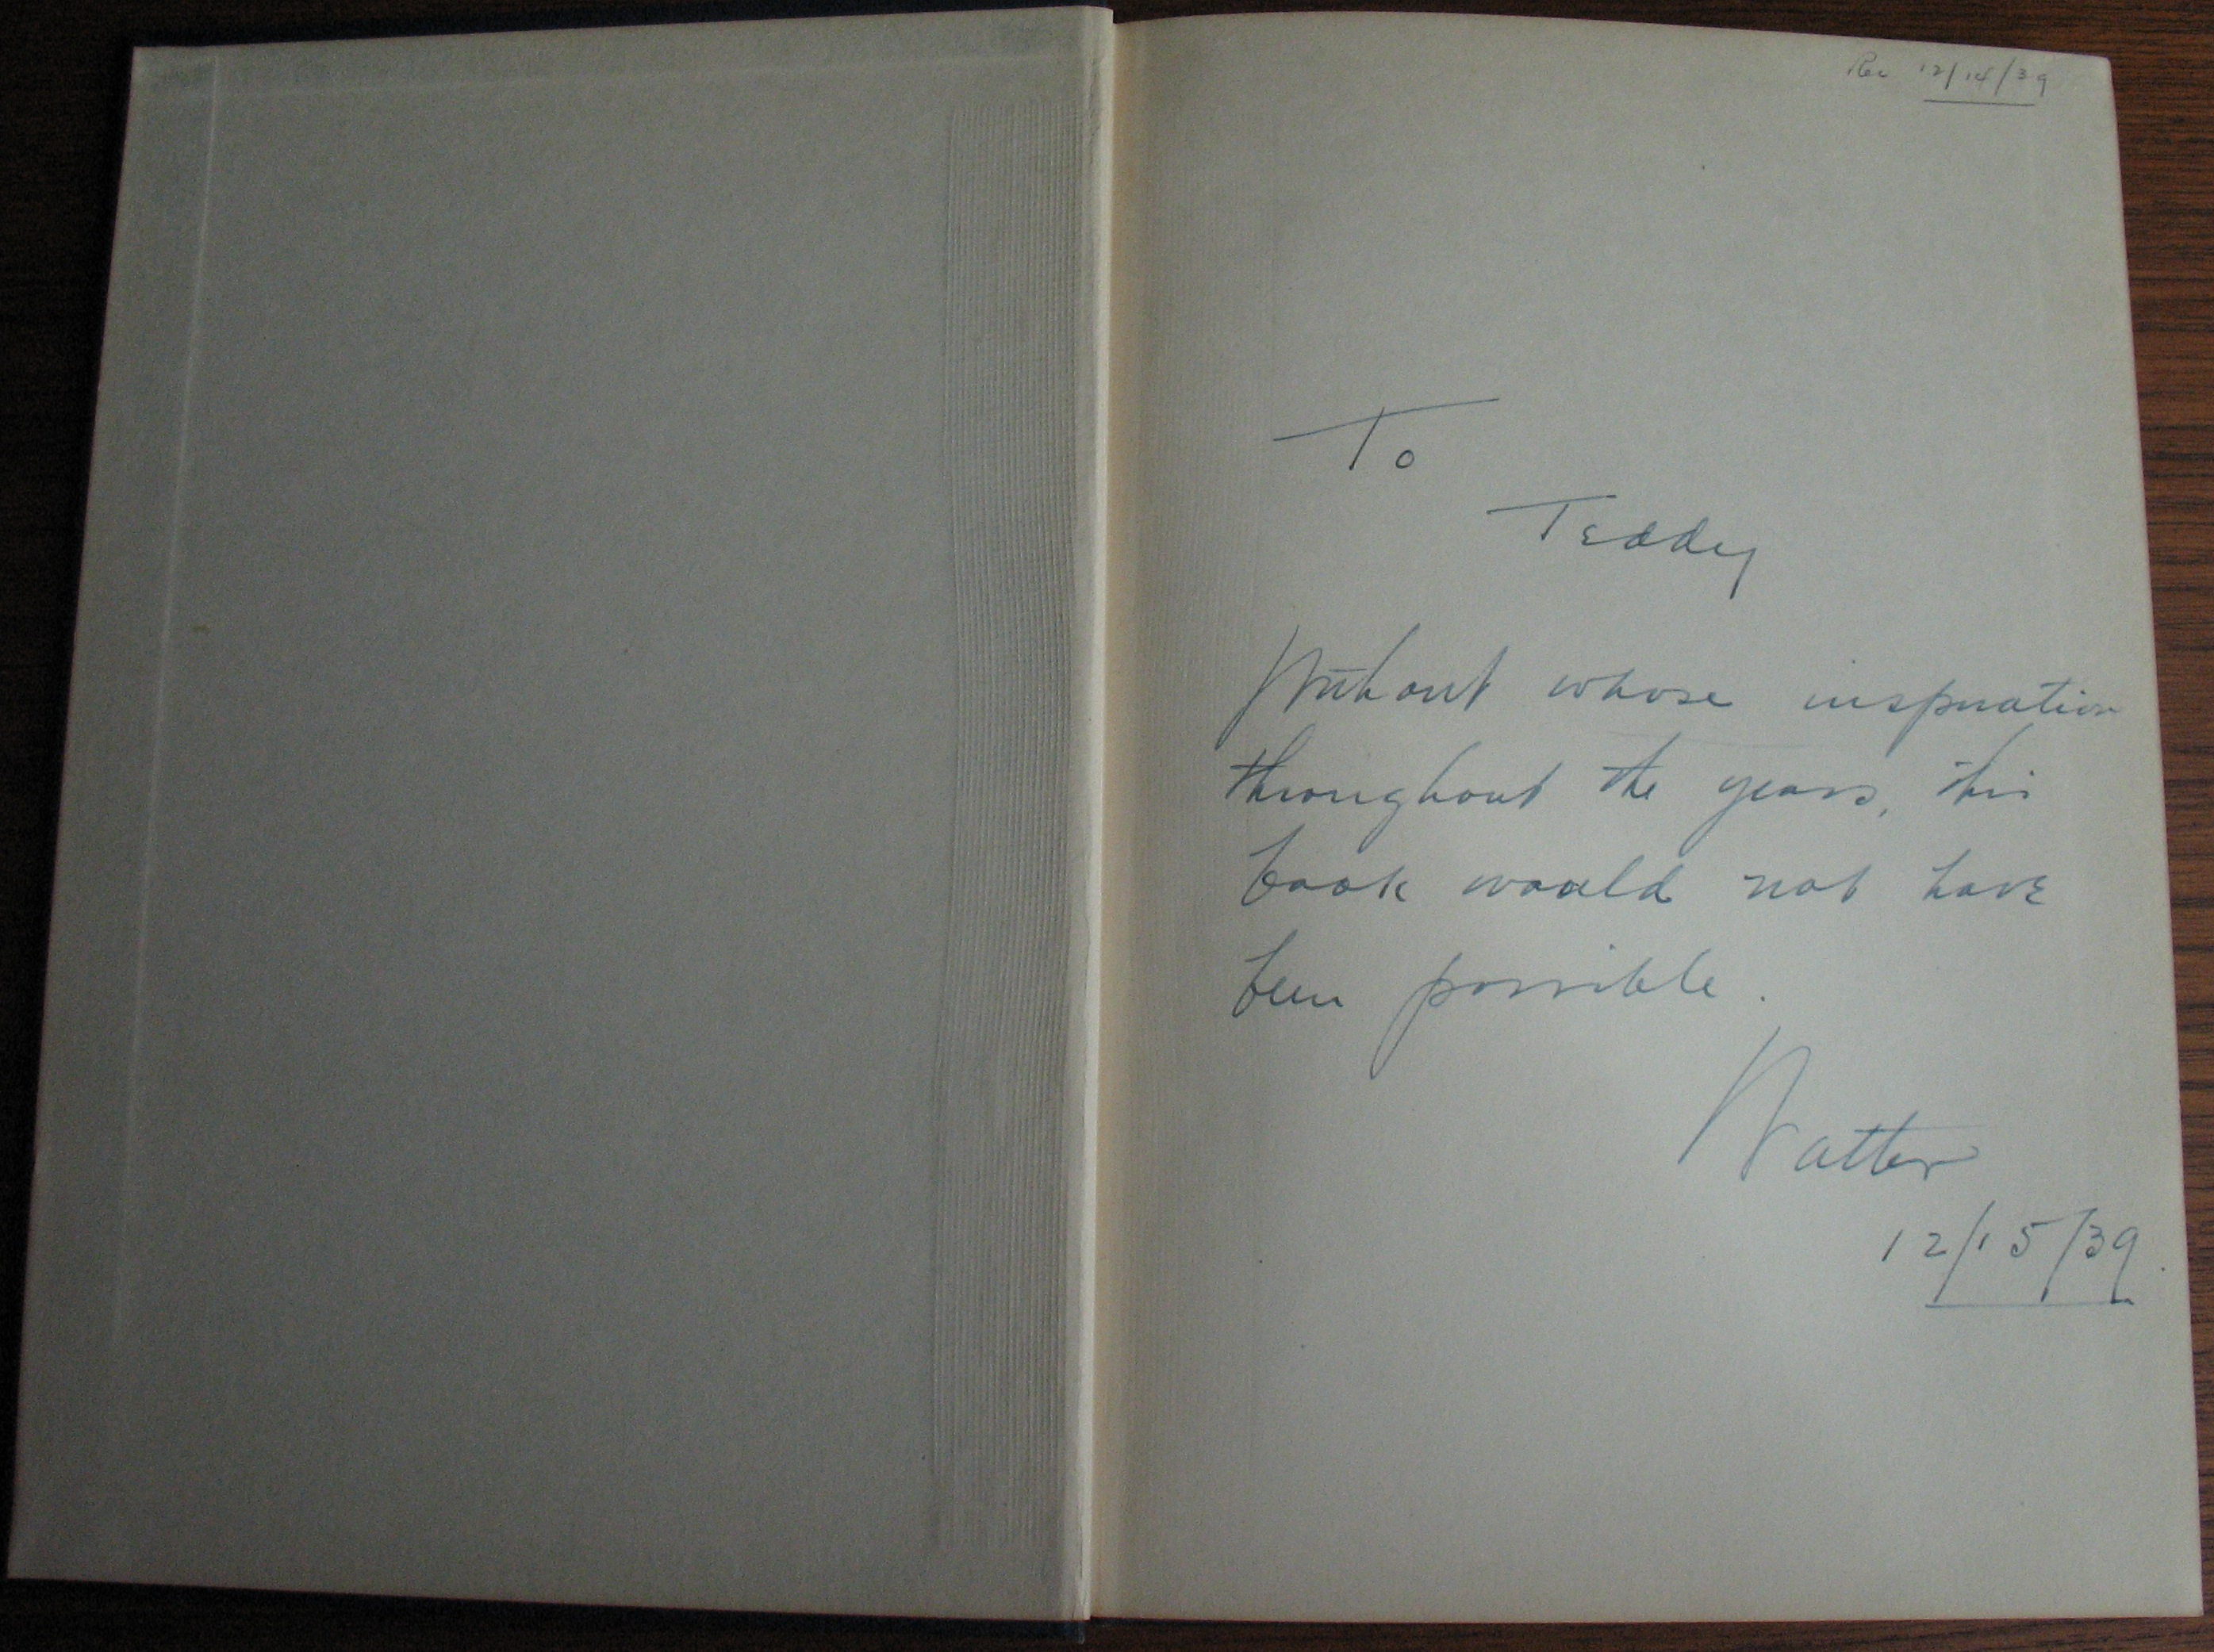 Rec 12/14/39
To
Teddy
Without whose inspiration
throughout the years, this
book would not have
been possible.
Walter
12/15/39.